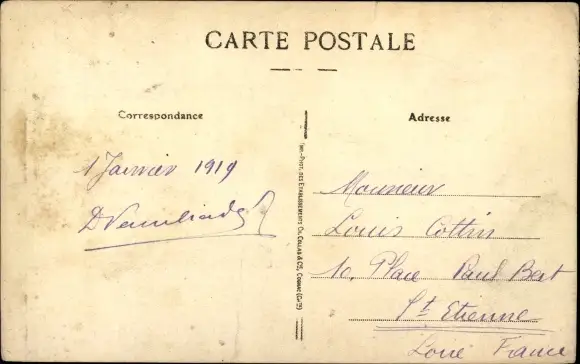 CARTE POSTALE
Correspondance
1 Janvier 1919
Imp.-Phot. des Etablissements Ch. Collas & Cie, Cognac (Chte)
Adresse
Monsieur
Louis Cottin
10, Place Paul Bert
St Etienne
Loire France